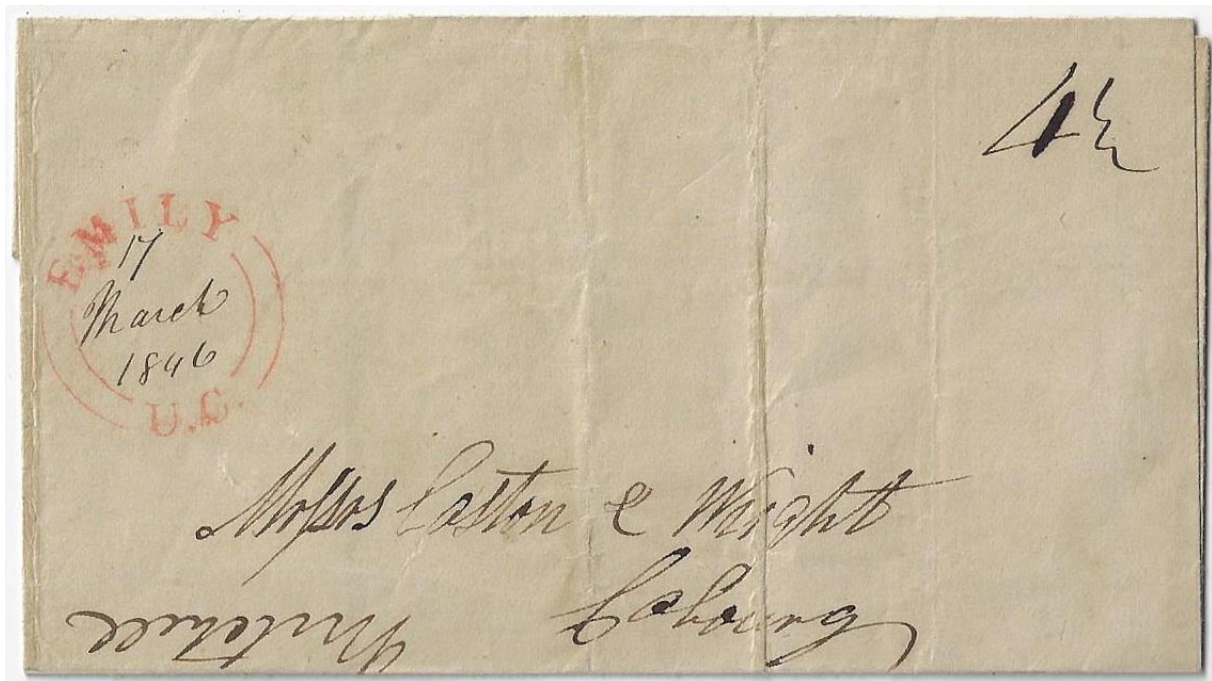 4½
EMILY
17
March
1846
U.C.
Messrs Easton & Wright
Cobourg
Mitchell